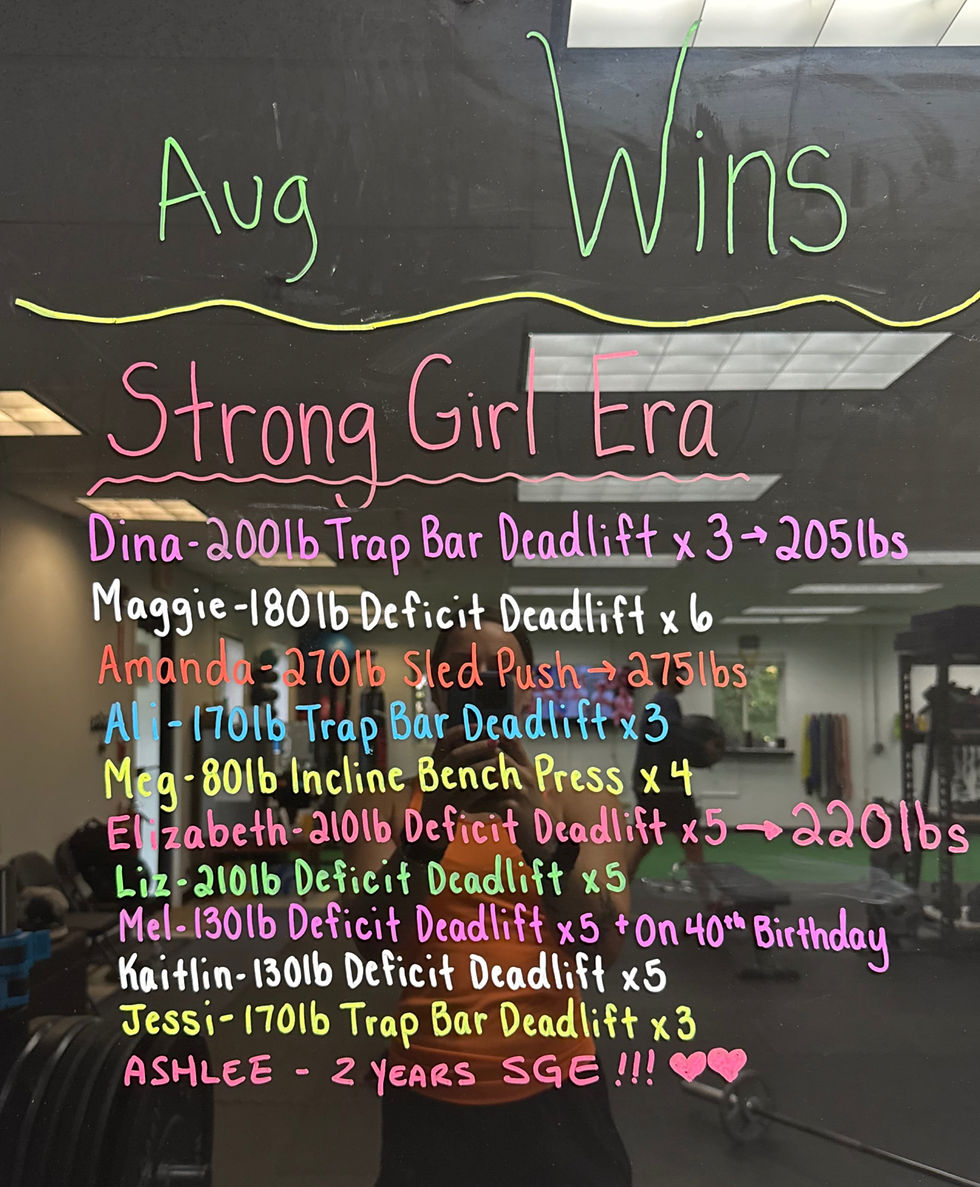 Aug Wins
Strong Girl Era
Dina-200lb Trap Bar Deadlift x 3→205lbs
Maggie-180lb Deficit Deadlift x 6
Amanda-270lb Sled Push→275lbs
Ali-170lb Trap Bar Deadlift x3
Meg-80lb Incline Bench Press x 4
Elizabeth-210lb Deficit Deadlift x5→220lbs
Liz-210lb Deficit Deadlift x5
Mel-130lb Deficit Deadlift x5 +On 40th Birthday
Kaitlin-130lb Deficit Deadlift x5
Jessi-170lb Trap Bar Deadlift x3
ASHLEE - 2 YEARS SGE!!! ♥♥